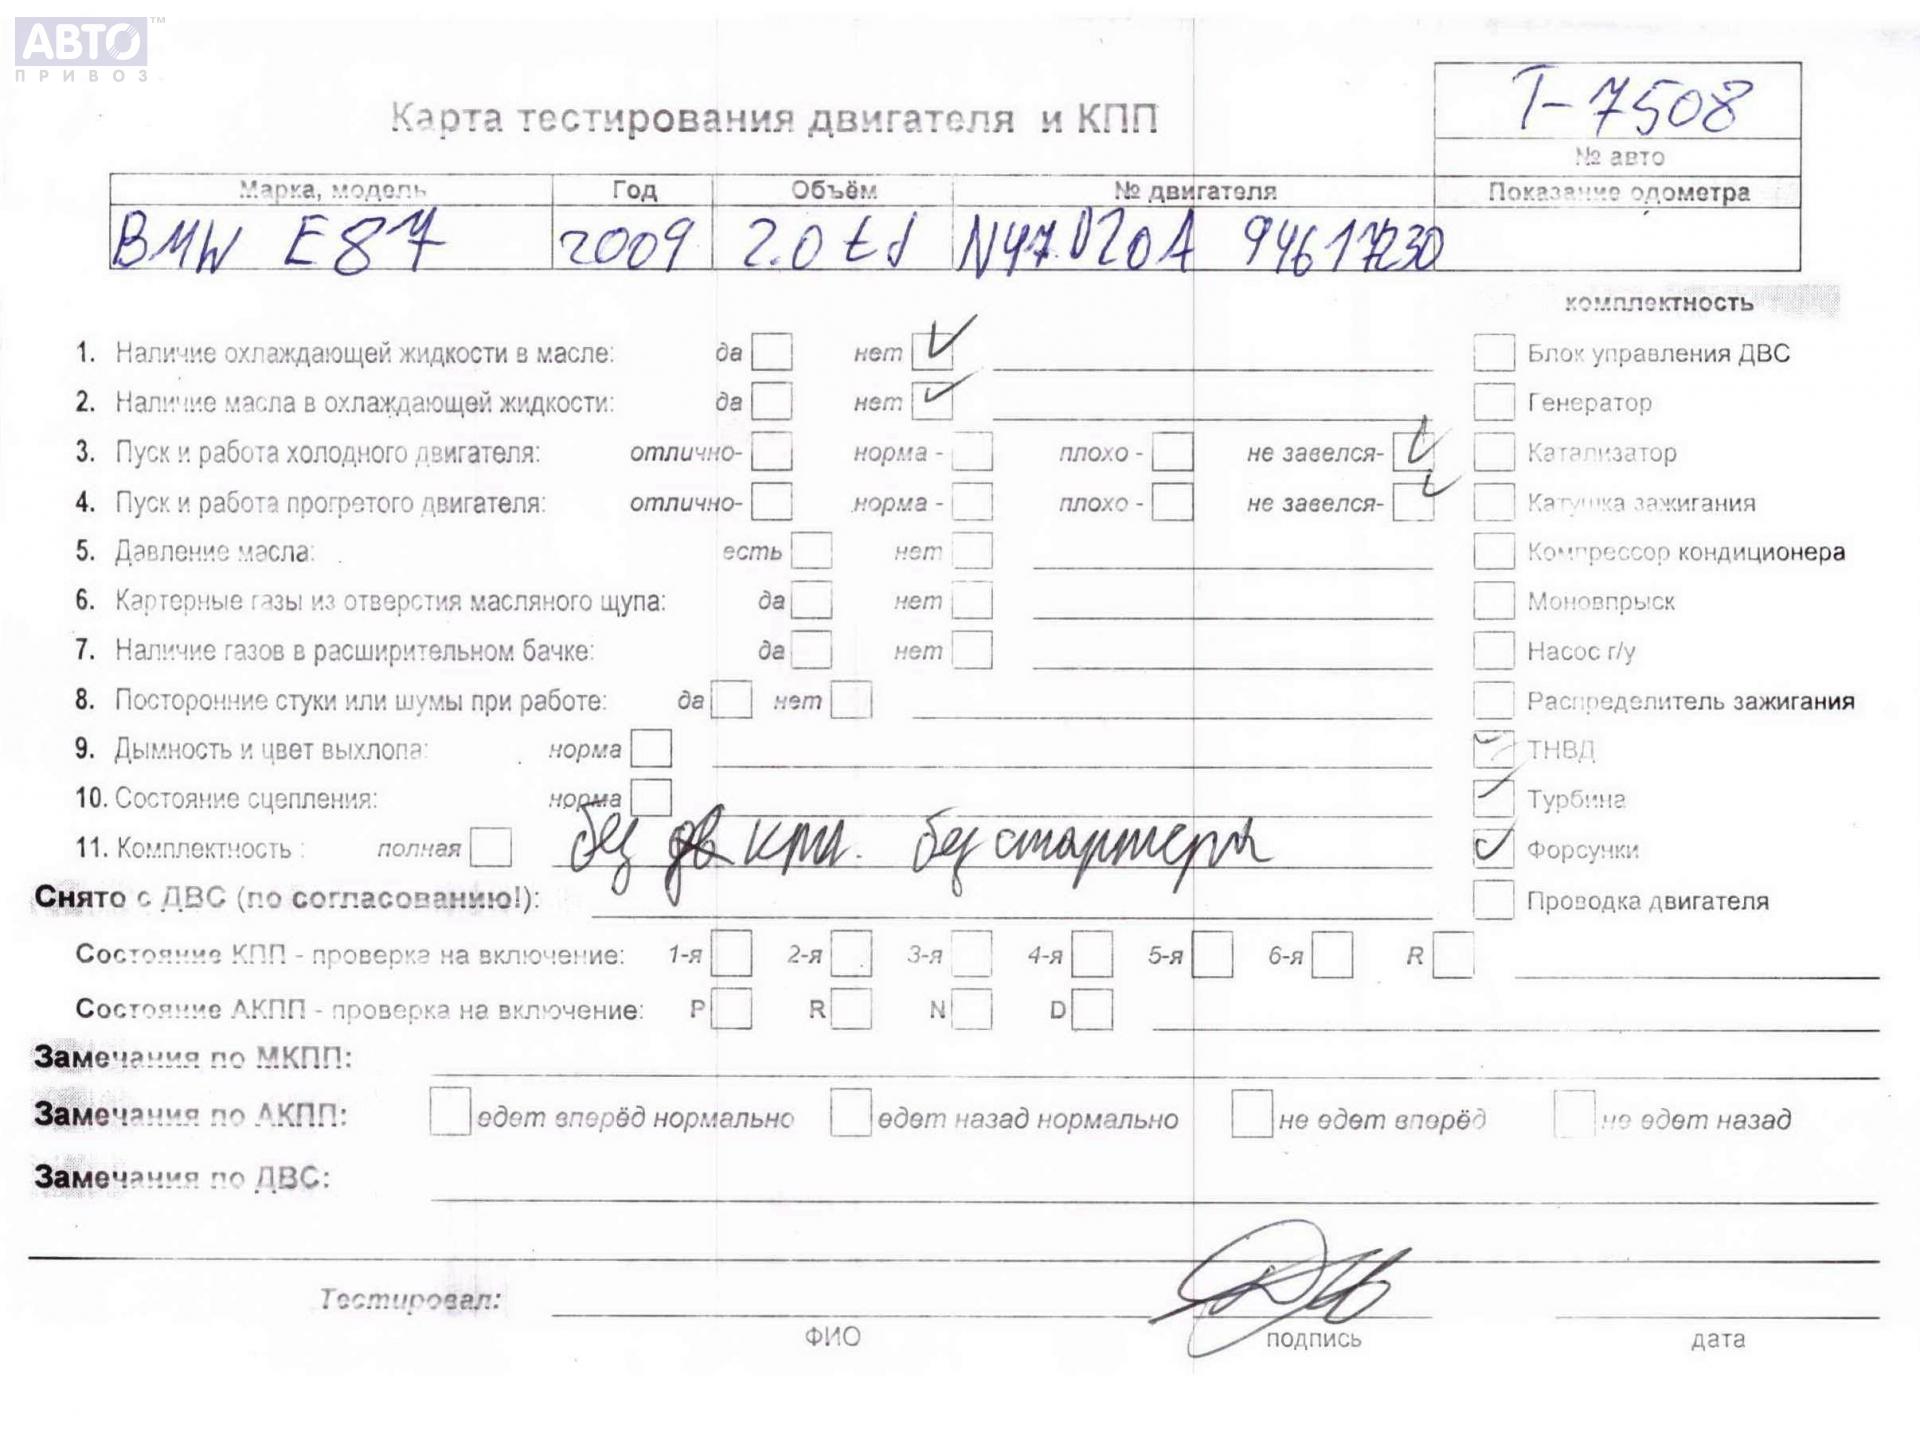 АВТО™
ПРИВОЗ
Т-7508
Карта тестирования двигателя и КПП
№ авто
Марка, модель Год Объём № двигателя Показание одометра
BMW E87 2009 2.0 td N47D20A 94617230
комплектность
1. Наличие охлаждающей жидкости в масле: да нет ✓ Блок управления ДВС
2. Наличие масла в охлаждающей жидкости: да нет ✓ Генератор
3. Пуск и работа холодного двигателя: отлично- норма - плохо - не завелся- ✓ Катализатор
4. Пуск и работа прогретого двигателя: отлично- норма - плохо - не завелся- ✓ Катушка зажигания
5. Давление масла: есть нет Компрессор кондиционера
6. Картерные газы из отверстия масляного щупа: да нет Моновпрыск
7. Наличие газов в расширительном бачке: да нет Насос г/у
8. Посторонние стуки или шумы при работе: да нет Распределитель зажигания
9. Дымность и цвет выхлопа: норма ✓ ТНВД
10. Состояние сцепления: норма ✓ Турбина
11. Комплектность : полная без кпп. без стартера ✓ Форсунки
Снято с ДВС (по согласованию!): Проводка двигателя
Состояние КПП - проверка на включение: 1-я 2-я 3-я 4-я 5-я 6-я R
Состояние АКПП - проверка на включение: P R N D
Замечания по МКПП:
Замечания по АКПП: едет вперёд нормально едет назад нормально не едет вперёд не едет назад
Замечания по ДВС:
Тестировал:
ФИО подпись дата